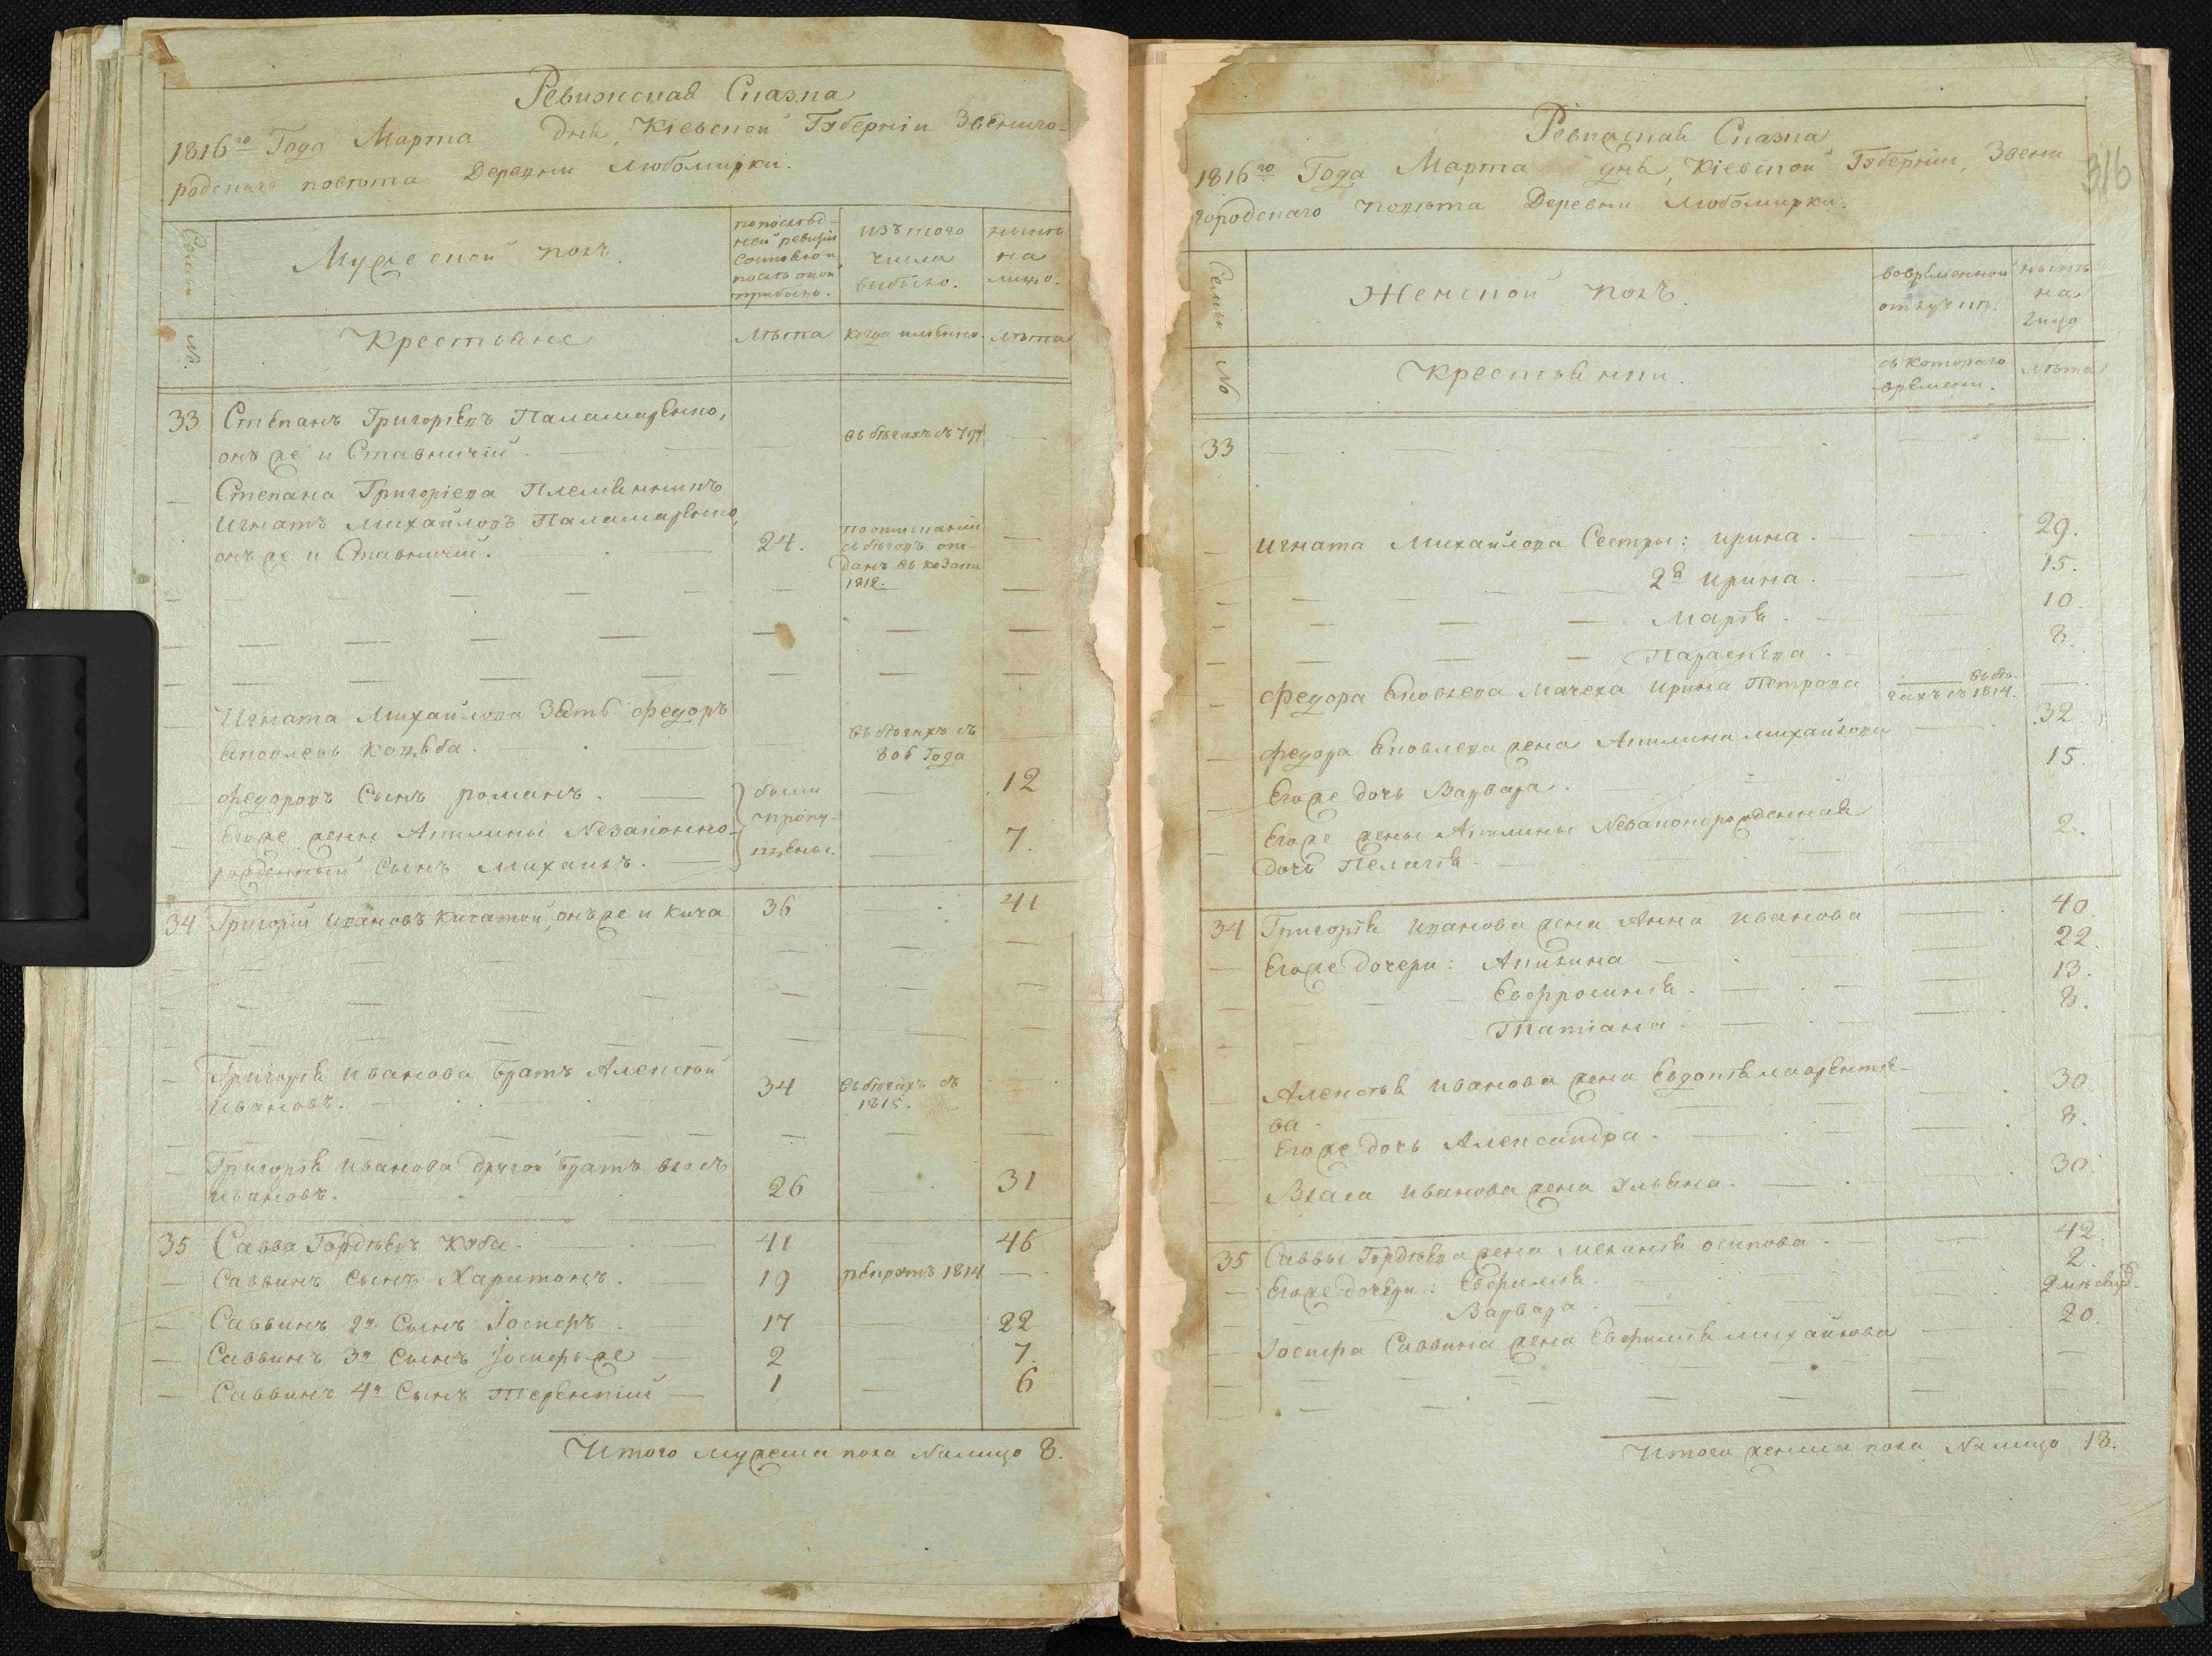 Ревижская Сказка
1816го Года Марта дня, Кіевской Губерніи Звениго-
родскаго повѣта Деревни Любомирки.
Семьи
Мужеской полъ.
по послѣд-
ней ревизіи
состояло и
послѣ оной
прибыло.
изъ того
числа
выбыло.
нынѣ
на
лицо.
№.
Крестьяне
Лѣта
когда имянно.
Лѣта
33 Степанъ Григоріевъ Паламаренко,
онъ же и Ставничій. — въ бѣгахъ съ 797 —
Степана Григоріева Племянникъ
Игнатъ Михайловъ Паламаренко,
онъ же и Ставничій. 24.
по отисканіи
съ бѣговъ от-
данъ въ козаки
1812.
Игната Михайлова Зять Федоръ
Яковлевъ Кодьба.
въ бѣгахъ съ
806 Года
Федоровъ Сынъ Романъ. 12
Егоже жены Акилины Незаконно-
рожденный Сынъ Михаилъ. 7.
были
пропу-
щены.
34 Григорій Ивановъ Кичатой, онъ же и Кича 36 41
Григорія Иванова братъ Алексѣй
Ивановъ. 34 въ бѣгахъ съ
1815.
Григорія Иванова другой братъ Власъ
Ивановъ. 26 31
35 Савва Гордѣевъ Коба. 41 46
Саввинъ Сынъ Харитонъ. 19 рекрутъ 1814 —
Саввинъ 2й Сынъ Іосифъ 17 22
Саввинъ 3й Сынъ Іосифъ же 2 7.
Саввинъ 4й Сынъ Терентій 1 6
Итого мужеска пола Налицо 8.
316
Ревижская Сказка
1816го Года Марта дня, Кіевской Губерніи, Звени
городскаго повѣта Деревни Любомирки.
Семьи
Женской полъ.
во временной
отлучкѣ.
нынѣ
на
лицо
№
Крестьянки.
съ котораго
времени.
Лѣта
33
Игната Михайлова Сестры: Ирина. 29.
2я Ирина. 15.
Марія. 10.
Параскева. 8
Федора Яковлева Мачеха Ирина Петрова въ бѣ-
гахъ съ 1814. —
Федора Яковлева жена Акилина Михайлова 32
Егоже дочь Варвара. 15.
Егоже жены Акилины Незаконорожденная
дочь Пелагія 2.
34 Григорія Иванова жена Анна Иванова 40
Егоже дочери: Акилина 22.
Евфросинія. 13.
Татіана. 8.
Алексѣя Иванова жена Евдокія Лаврентіе-
ва. 30
Егоже дочь Александра. 8.
Власа Иванова жена Ульяна. 30.
35 Саввы Гордѣева жена Меланія Осипова 42.
Егоже дочери: Евфимія. 2.
Варвара.
Іосифа Саввина жена Евфимія Михайлова 20.
Итого женска пола Налицо 18.